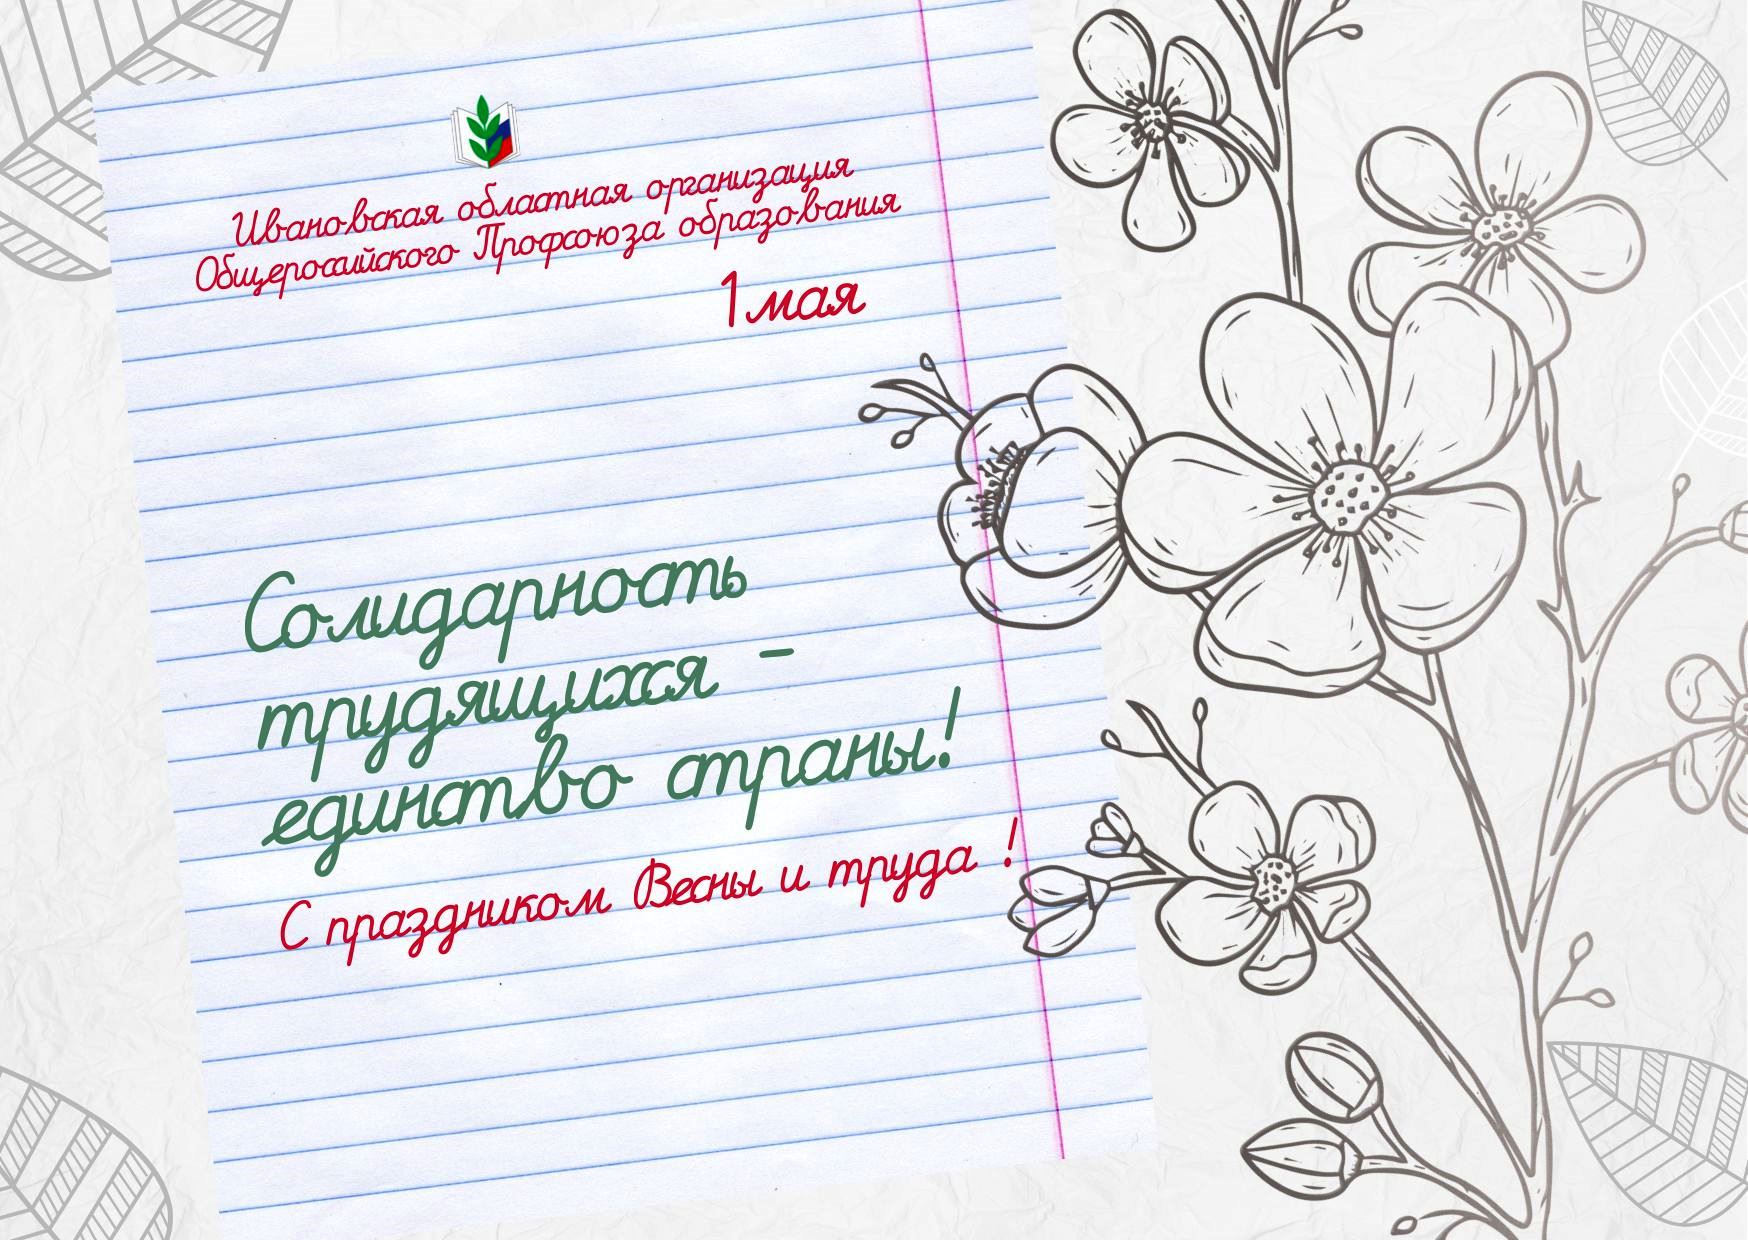 Ивановская областная организация
Общероссийского Профсоюза образования
1 мая
Солидарность
трудящихся -
единство страны!
С праздником Весны и труда !